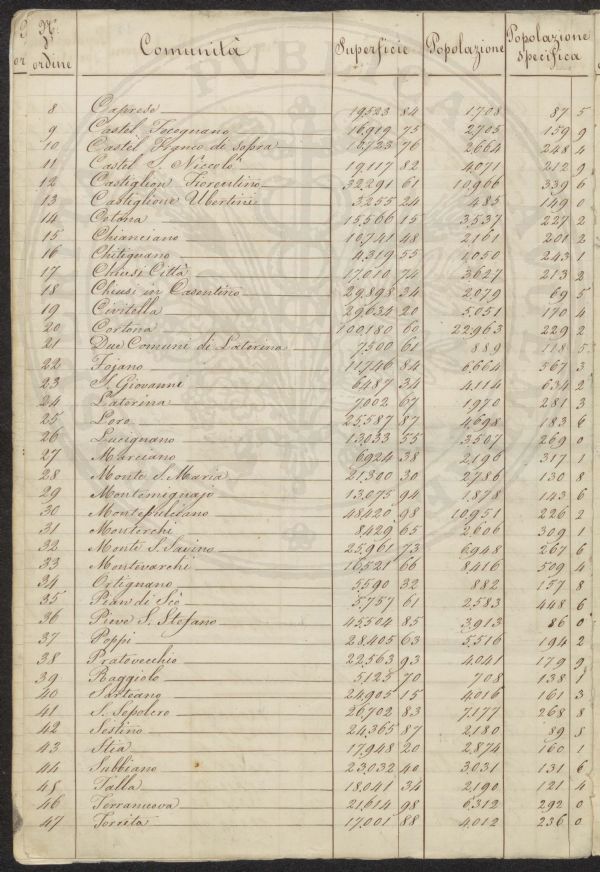 N.° d'ordine Comunità Superficie Popolazione Popolazione specifica
8 Caprese 19,523 84 1,708 87 5
9 Castel Focognano 16,919 75 2,705 159 9
10 Castel Franco di sopra 10,723 76 2,664 248 4
11 Castel S. Niccolò 19,117 82 4,071 212 9
12 Castiglion Fiorentino 32,291 61 10,906 339 6
13 Castiglione Ubertini 3,255 24 485 149 0
14 Cetona 15,566 15 3,537 227 2
15 Chianciano 10,741 48 2,161 201 2
16 Chitignano 4,319 55 1,050 243 1
17 Chiusi Città 17,010 74 3,627 213 2
18 Chiusi in Casentino 29,898 34 2,079 69 5
19 Civitella 29,634 20 5,051 170 4
20 Cortona 100,180 60 22,963 229 2
21 Due Comuni di Laterina 7,500 61 889 118 5
22 Fojano 11,746 84 6,664 567 3
23 S. Giovanni 6,487 34 4,114 634 2
24 Laterina 7,002 67 1,970 281 3
25 Loro 25,587 87 4,698 183 6
26 Lucignano 13,033 55 3,507 269 0
27 Marciano 6,924 38 2,196 317 1
28 Monte S. Maria 21,300 30 2,786 130 8
29 Montemignajo 13,075 94 1,878 143 6
30 Montepulciano 48,420 98 10,951 226 2
31 Monterchi 8,429 65 2,606 309 1
32 Monte S. Savino 25,961 73 6,948 267 6
33 Montevarchi 16,521 66 8,416 509 4
34 Ortignano 5,590 32 882 157 8
35 Pian di Scò 5,757 61 2,583 448 6
36 Pieve S. Stefano 45,504 85 3,913 86 0
37 Poppi 28,405 63 5,516 194 2
38 Pratovecchio 22,563 93 4,041 179 9
39 Raggiolo 5,125 70 708 138 1
40 Sarteano 24,905 15 4,016 161 3
41 S. Sepolcro 26,702 83 7,177 268 8
42 Sestino 24,365 87 2,180 89 8
43 Stia 17,948 20 2,874 160 1
44 Subbiano 23,032 40 3,031 131 6
45 Talla 18,041 34 2,190 121 4
46 Terranuova 21,614 98 6,312 292 0
47 Torrita 17,001 88 4,012 236 0